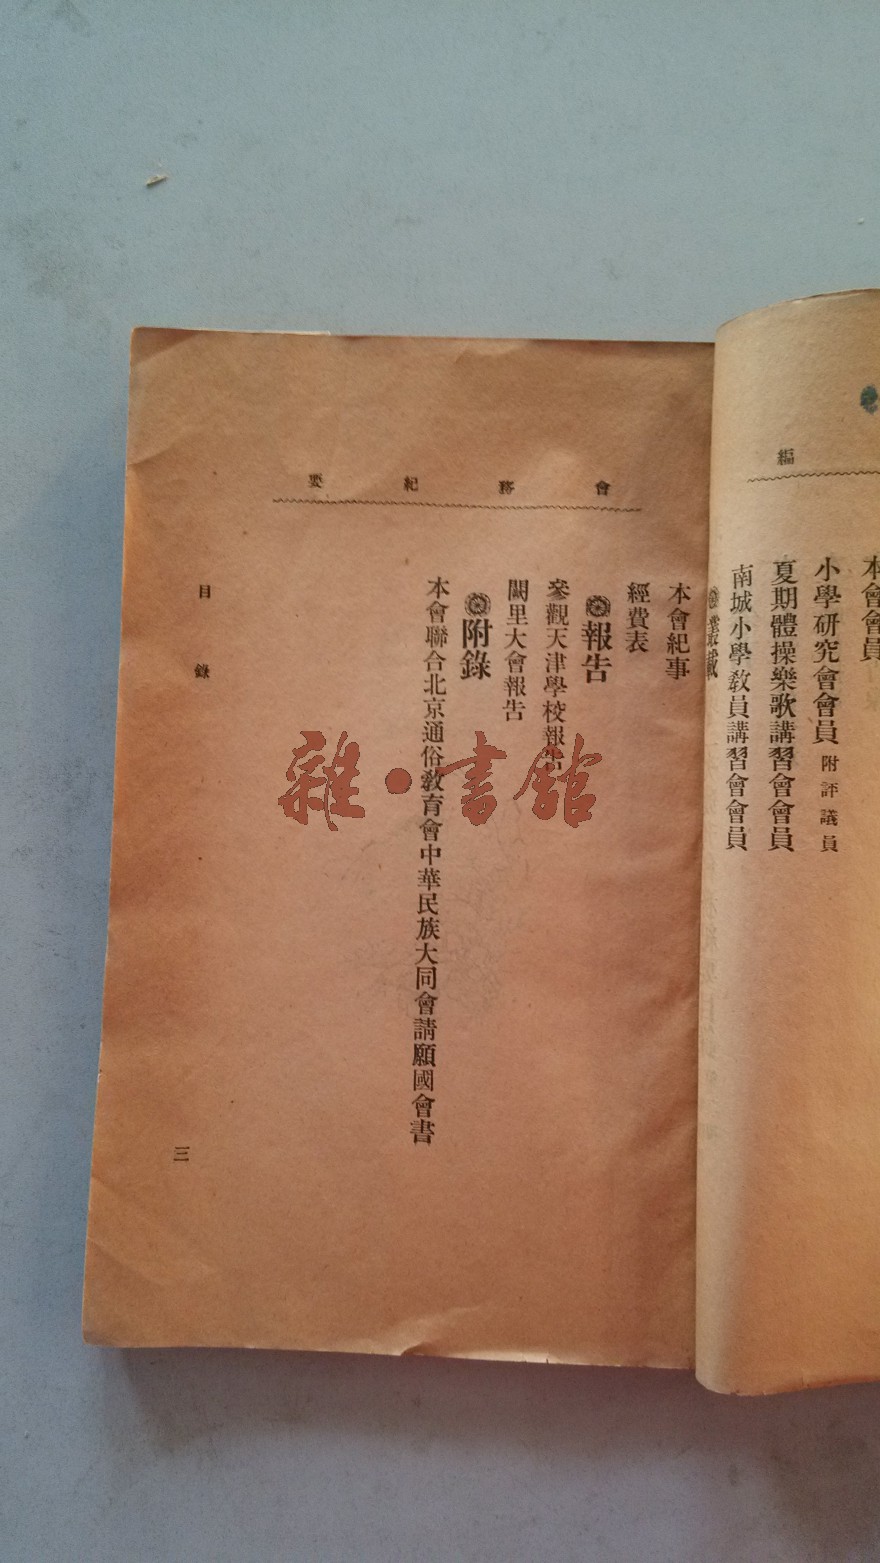 編
本會會員
小學研究會會員 附評議員
夏期體操樂歌講習會會員
南城小學敎員講習會會員
會務紀要
本會紀事
經費表
報告
參觀天津學校報告
闕里大會報告
附錄
本會聯合北京通俗敎育會中華民族大同會請願國會書
目錄
三
雜·書館